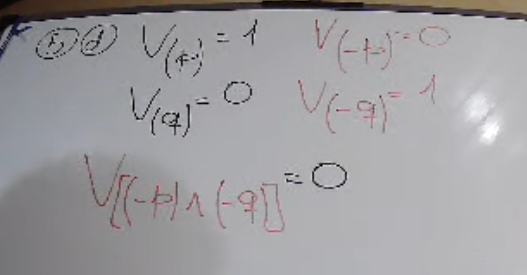 b d V(p) = 1 V(-p) = 0
V(q) = 0 V(-q) = 1
V[(-p) ∧ (-q)] = 0